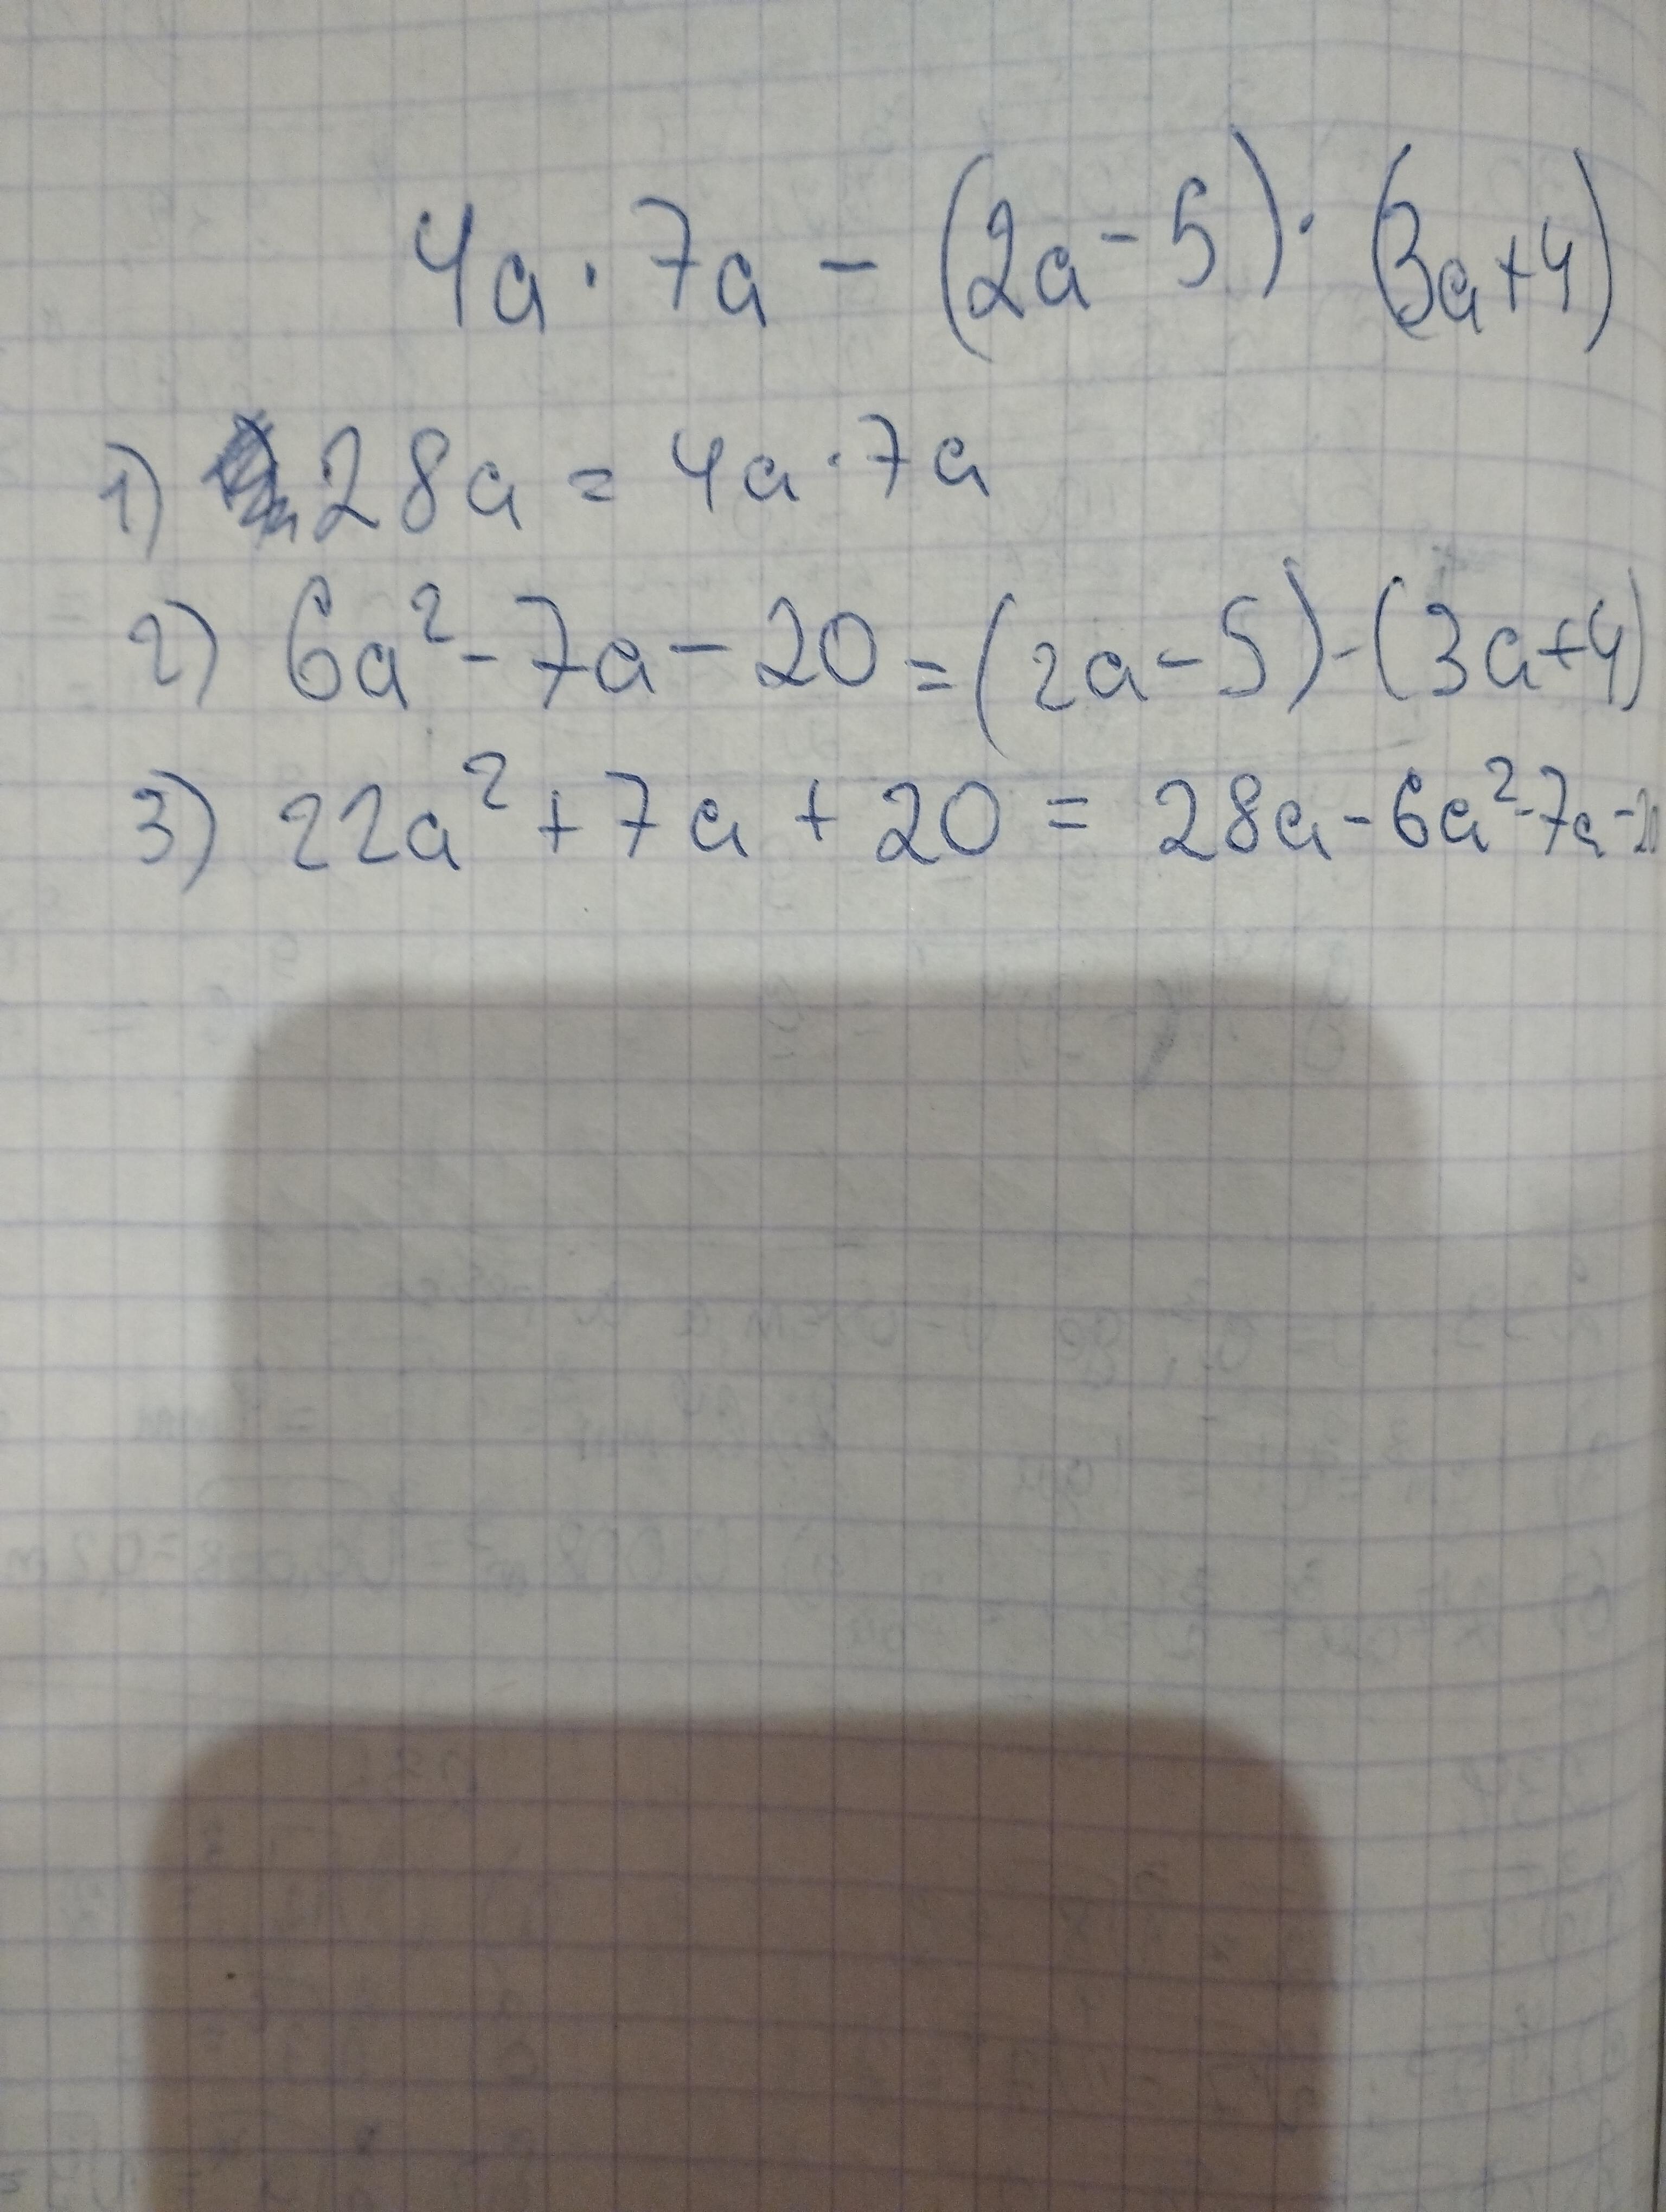 4a · 7a - (2a - 5) · (3a+4)
1) 28a = 4a · 7a
2) 6a² - 7a - 20 = (2a - 5) - (3a+4)
3) 22a² + 7a + 20 = 28a - 6a² - 7a - 20